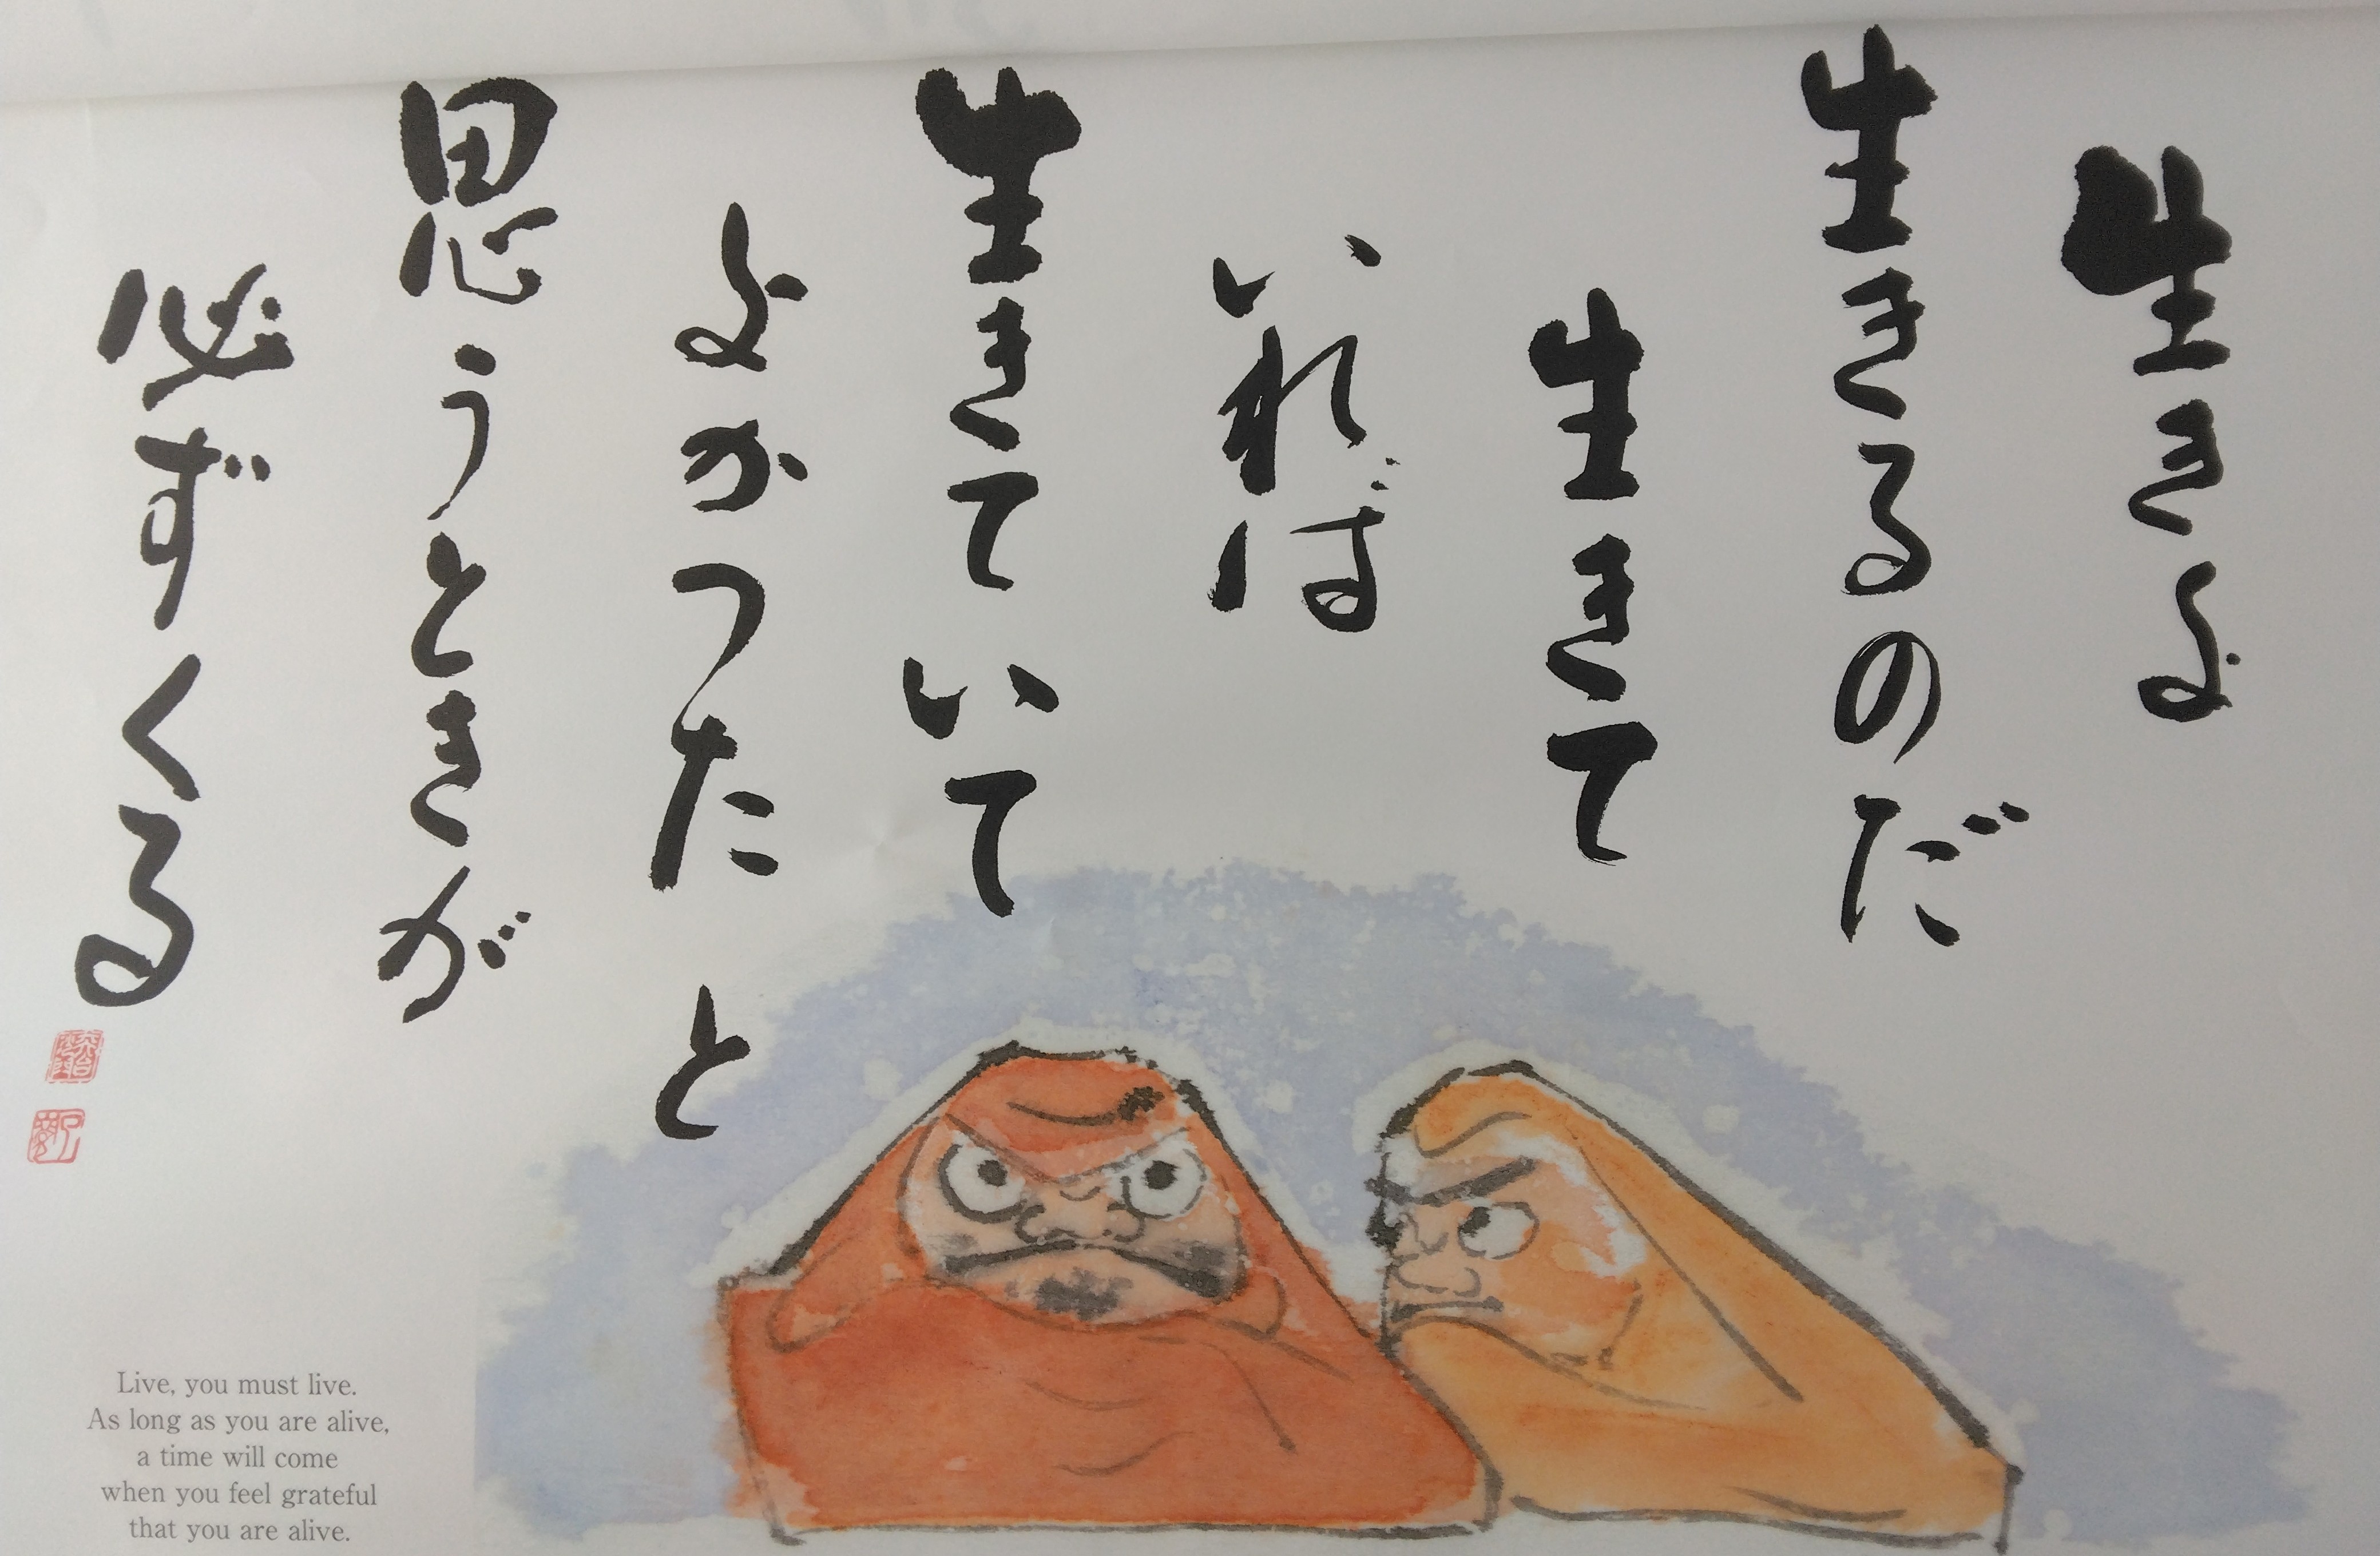 生きよ
生きるのだ
生きて
いれば
生きていて
よかったと
思うときが
必ずくる
Live, you must live.
As long as you are alive,
a time will come
when you feel grateful
that you are alive.